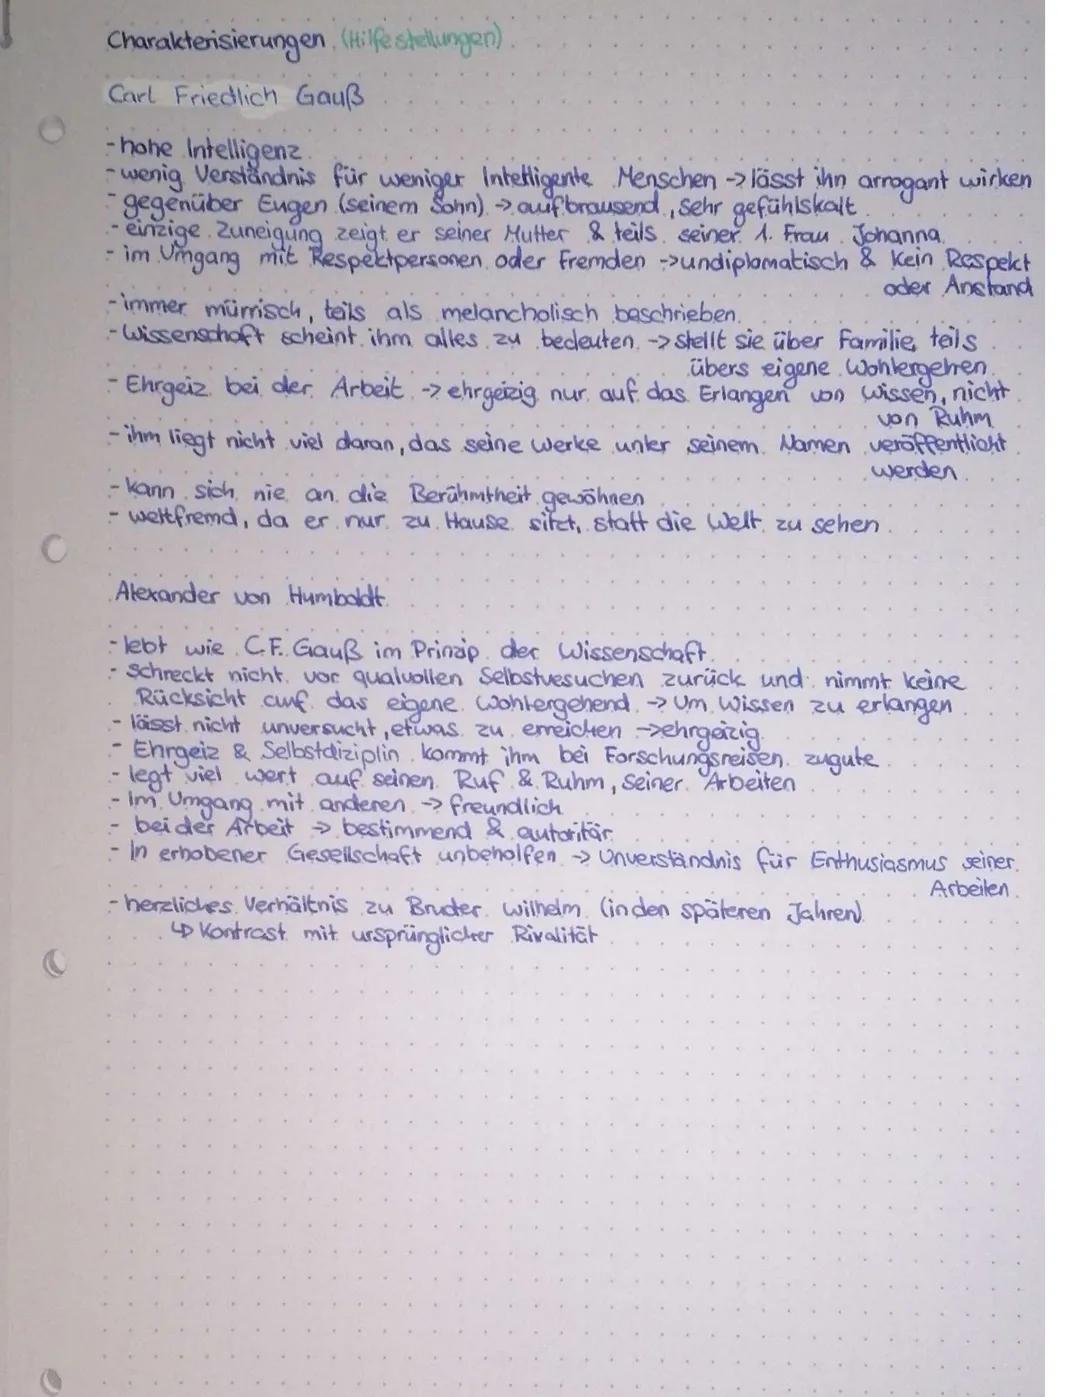 Charakterisierungen (Hilfestellungen)
Carl Friedlich Gauß
- hohe Intelligenz
- wenig Verständnis für weniger Intelligente Menschen -> lässt ihn arrogant wirken
- gegenüber Eugen (seinem Sohn) -> aufbrausend, sehr gefühlskalt
- einzige Zuneigung zeigt er seiner Mutter & teils seiner 1. Frau Johanna
- im Umgang mit Respektpersonen oder Fremden -> undiplomatisch & Kein Respekt
oder Anstand
- immer mürrisch, teils als melancholisch beschrieben
- Wissenschaft scheint ihm alles zu bedeuten -> stellt sie über Familie, teils
übers eigene Wohlergehen
- Ehrgeiz bei der Arbeit -> ehrgeizig nur auf das Erlangen von Wissen, nicht
von Ruhm
- ihm liegt nicht viel daran, das seine Werke unter seinem Namen veröffentlicht
werden
- kann sich nie an die Berühmtheit gewöhnen
- weltfremd, da er nur zu Hause sitzt, statt die Welt zu sehen
Alexander von Humboldt
- lebt wie C.F. Gauß im Prinzip der Wissenschaft
- schreckt nicht vor qualvollen Selbstvesuchen zurück und nimmt keine
Rücksicht auf das eigene Wohlergehend -> Um Wissen zu erlangen
- lässt nicht unversucht, etwas zu erreichen -> ehrgeizig
- Ehrgeiz & Selbstdiziplin kommt ihm bei Forschungsreisen zugute
- legt viel wert auf seinen Ruf & Ruhm, Seiner Arbeiten
- Im Umgang mit anderen -> freundlich
- bei der Arbeit -> bestimmend & autoritär
- In erhobener Gesellschaft unbeholfen -> Unverständnis für Enthusiasmus seiner
Arbeiten
- herzliches Verhältnis zu Bruder Wilhelm (in den späteren Jahren)
↳ Kontrast mit ursprünglicher Rivalität